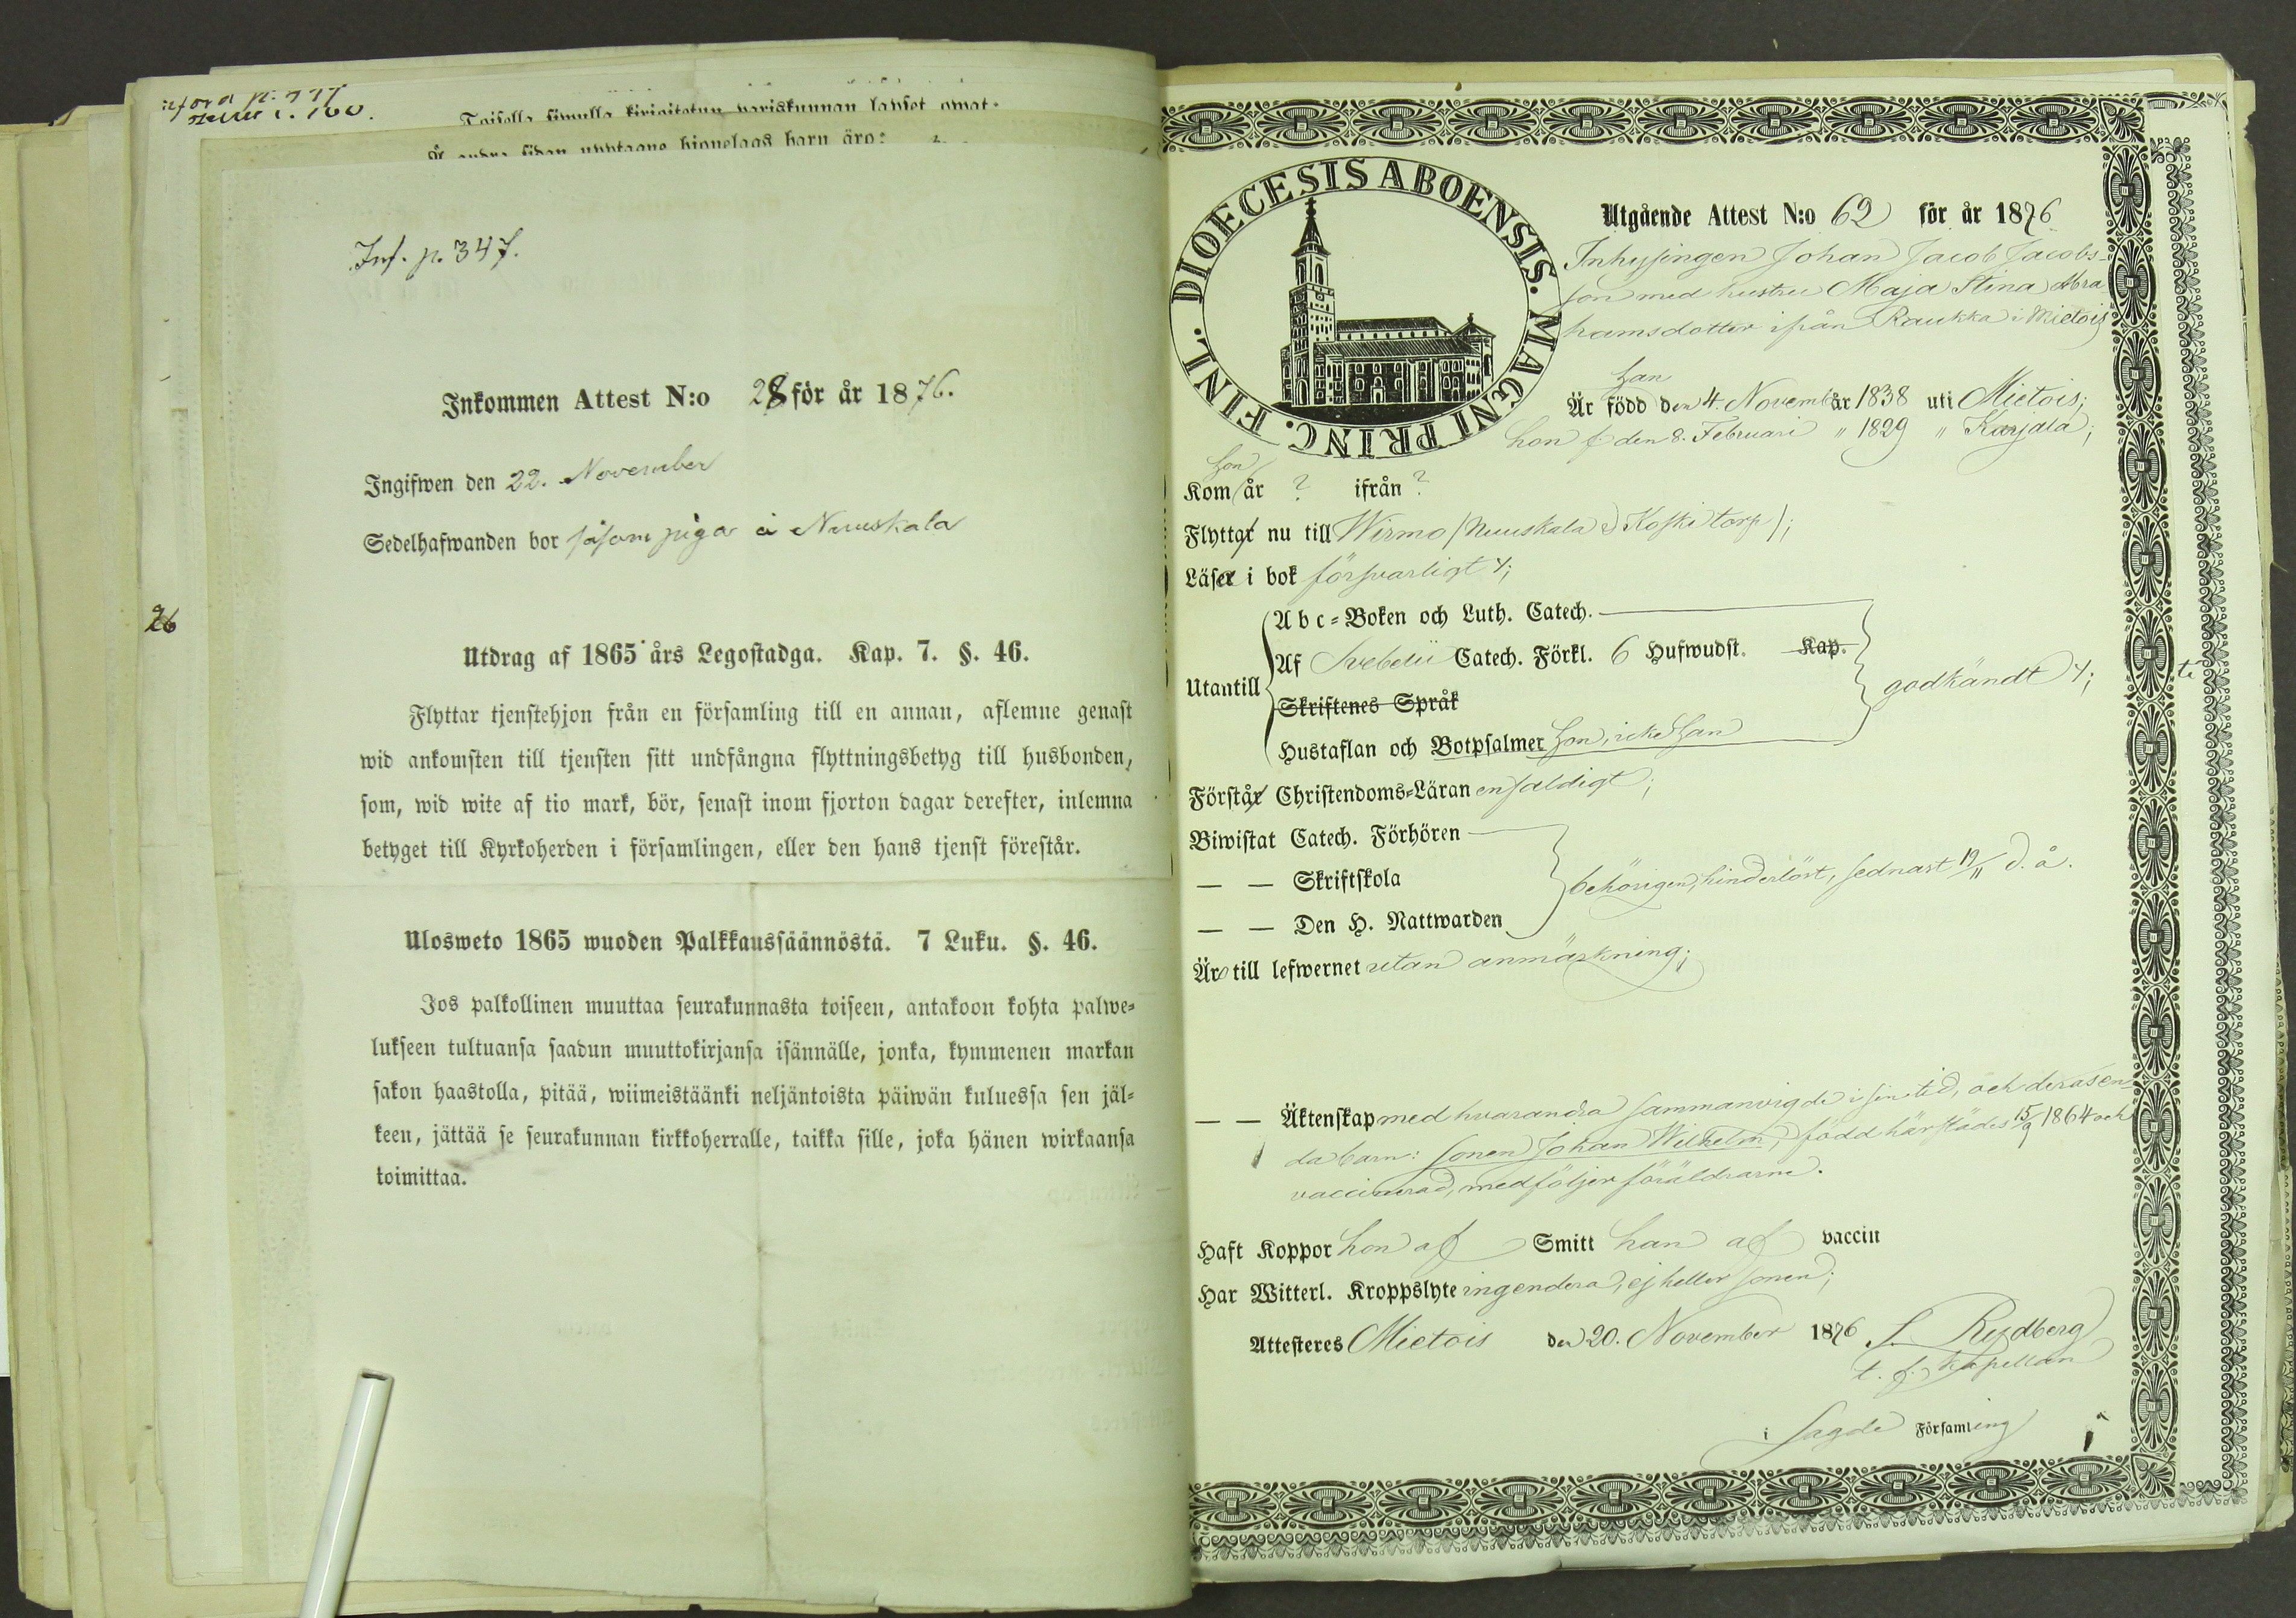 Toisella siwulla kirjoitetun pariskunnan lapset owat:
Å andra sidan upptagne hjonelags barn äro:
Inf. p. 347.
Inkommen Attest N:o 28 för år 1876.
Ingifwen den 22. November
Sedelhafwanden bor såsom piga å Nuuskala
26
Utdrag af 1865 års Legostadga. Kap. 7. §. 46.
Flyttar tjenstehjon från en församling till en annan, aflemne genast
wid ankomsten till tjensten sitt undfångna flyttningsbetyg till husbonden,
som, wid wite af tio mark, bör, senast inom fjorton dagar derefter, inlemna
betyget till Kyrkoherden i församlingen, eller den hans tjenst förestår.
Ulosweto 1865 wuoden Palkkaussäännöstä. 7 Luku. §. 46.
Jos palkollinen muuttaa seurakunnasta toiseen, antakoon kohta palwe-
lukseen tultuansa saadun muuttokirjansa isännälle, jonka, kymmenen markan
sakon haastolla, pitää, wiimeistäänki neljäntoista päiwän kuluessa sen jäl-
keen, jättää se seurakunnan kirkkoherralle, taikka sille, joka hänen wirkaansa
toimittaa.
DIOECESIS ABOENSIS. MAGNI PRINC. FINL.
Utgående Attest N:o 62 för år 1876
Inhysingen Johan Jacob Jacobs-
son med hustru Maja Stina Abra
hamsdotter ifrån Raukka i Mietois
han
Är född den 4. Novemb år 1838 uti Mietois;
hon f. den 8. Februari " 1829 " Karjala;
hon
Kom år ? ifrån ?
Flyttar nu till Wirmo /Nuuskala Koski torp/;
Läser i bok försvarligt;
Utantill
Abc-Boken och Luth. Catech.
Af Svebelii Catech. Förkl. 6 Hufwudst. Kap.
Skriftenes Språk
godkändt
Hustaflan och Botpsalmer hon, icke han
Förstår Christendoms-Läran enfaldigt;
Biwistat Catech. Förhören
— — Skriftskola
behörigen, hinderlöst, sednast 19/11 d. å.
— — Den H. Nattwarden
Äro till lefwernet utan anmärkning;
— — Äktenskap med hvarandra sammanvigde i sin tid, och deras en-
da barn: sonen Johan Wilhelm, född härstädes 15/9 1864 och
vaccinerad, medföljer föräldrarne.
Haft Koppor hon af Smitt han af vaccin
Har Witterl. Kroppslyte ingendera, ej heller sonen;
Attesteres Mietois den 20. November 1876 Rydberg
t. f. Kapellan
i sagde Församling